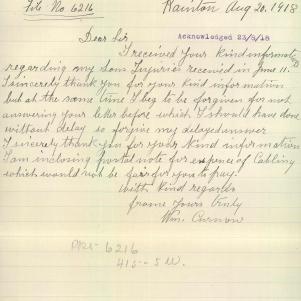 File No 6216
Rainton Aug 20. 1918
Dear Sir
Acknowledged 23/8/18
I received your kind information
regarding my Sons Injuries received in June 11.
I sincerely thank you for your kind information
but at the same time I beg to be forgiven for not
answering your letter before which I should have done
without delay so forgive my delayed answer
I sincerely thank you for your kind information
I am inclosing postal note for expence of Cabling
which would not be fair for you to pay.
with kind regards
frome yours truly
Wm. Curnow
6216